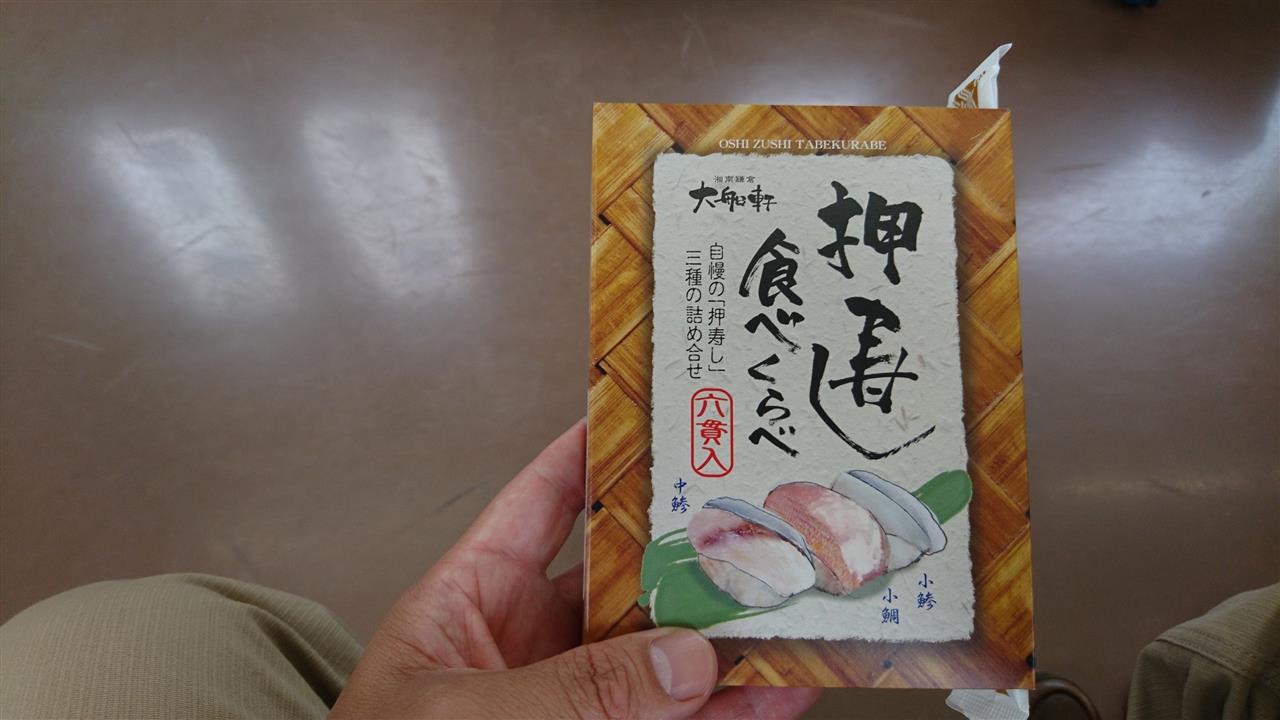 OSHI ZUSHI TABEKURABE
湘南鎌倉
大船軒
押寿し
食べくらべ
自慢の「押寿し」
三種の詰め合せ
六貫入
中鯵
小鯛
小鯵